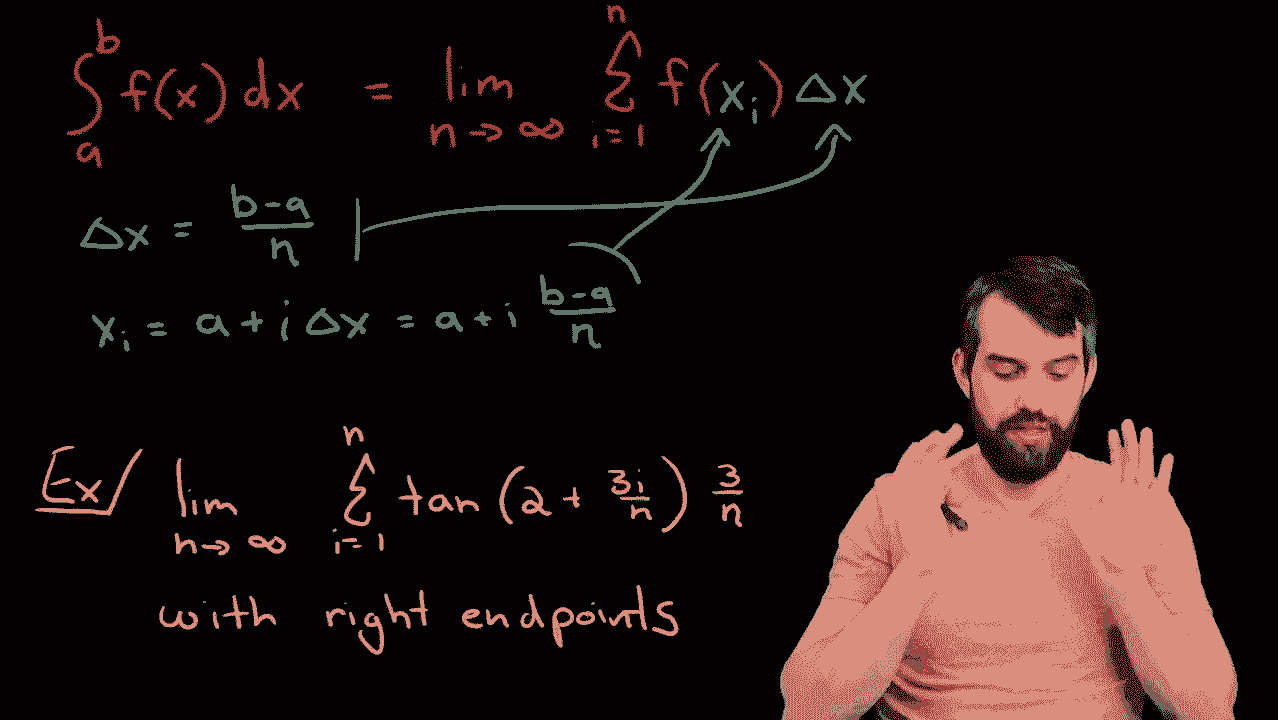 ∫_a^b f(x) dx = lim_{n→∞} Σ_{i=1}^n f(x_i) Δx
Δx = (b-a)/n
x_i = a + i Δx = a + i (b-a)/n
Ex lim_{n→∞} Σ_{i=1}^n tan(2 + 3i/n) 3/n
with right endpoints